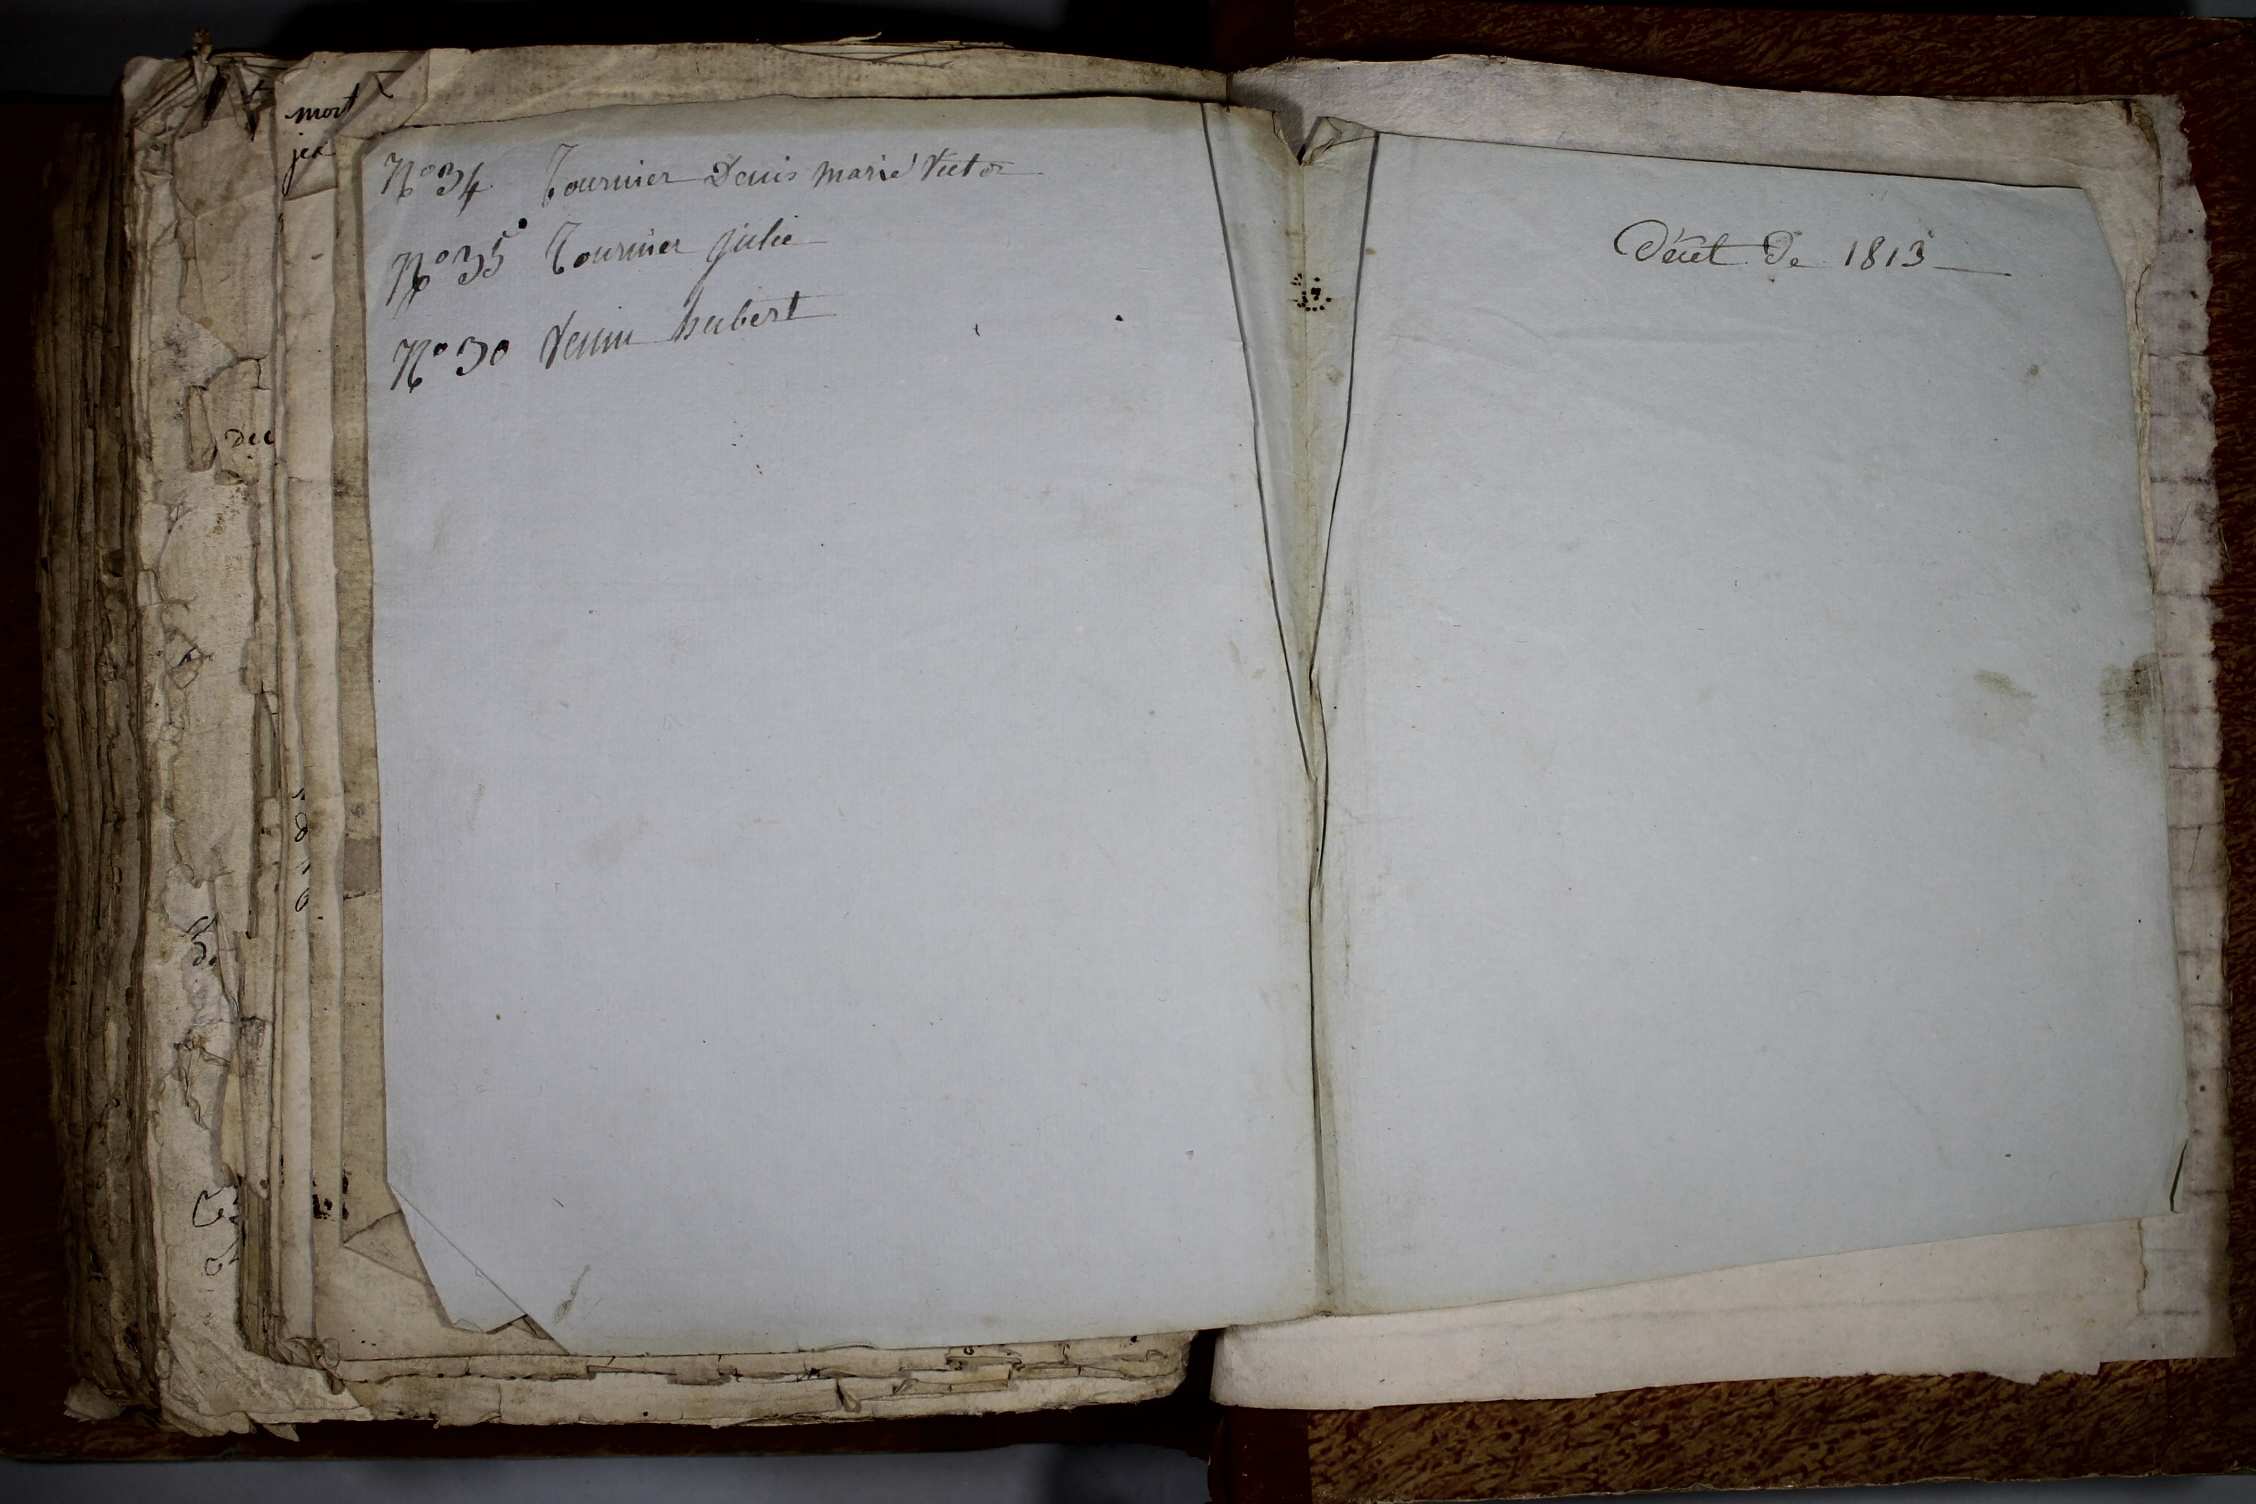 mort
jea
N° 34 Tournier Denis marie Victor
N° 35 Tournier julie
N° 30 Venin hubert
dec
de
Décet De 1813